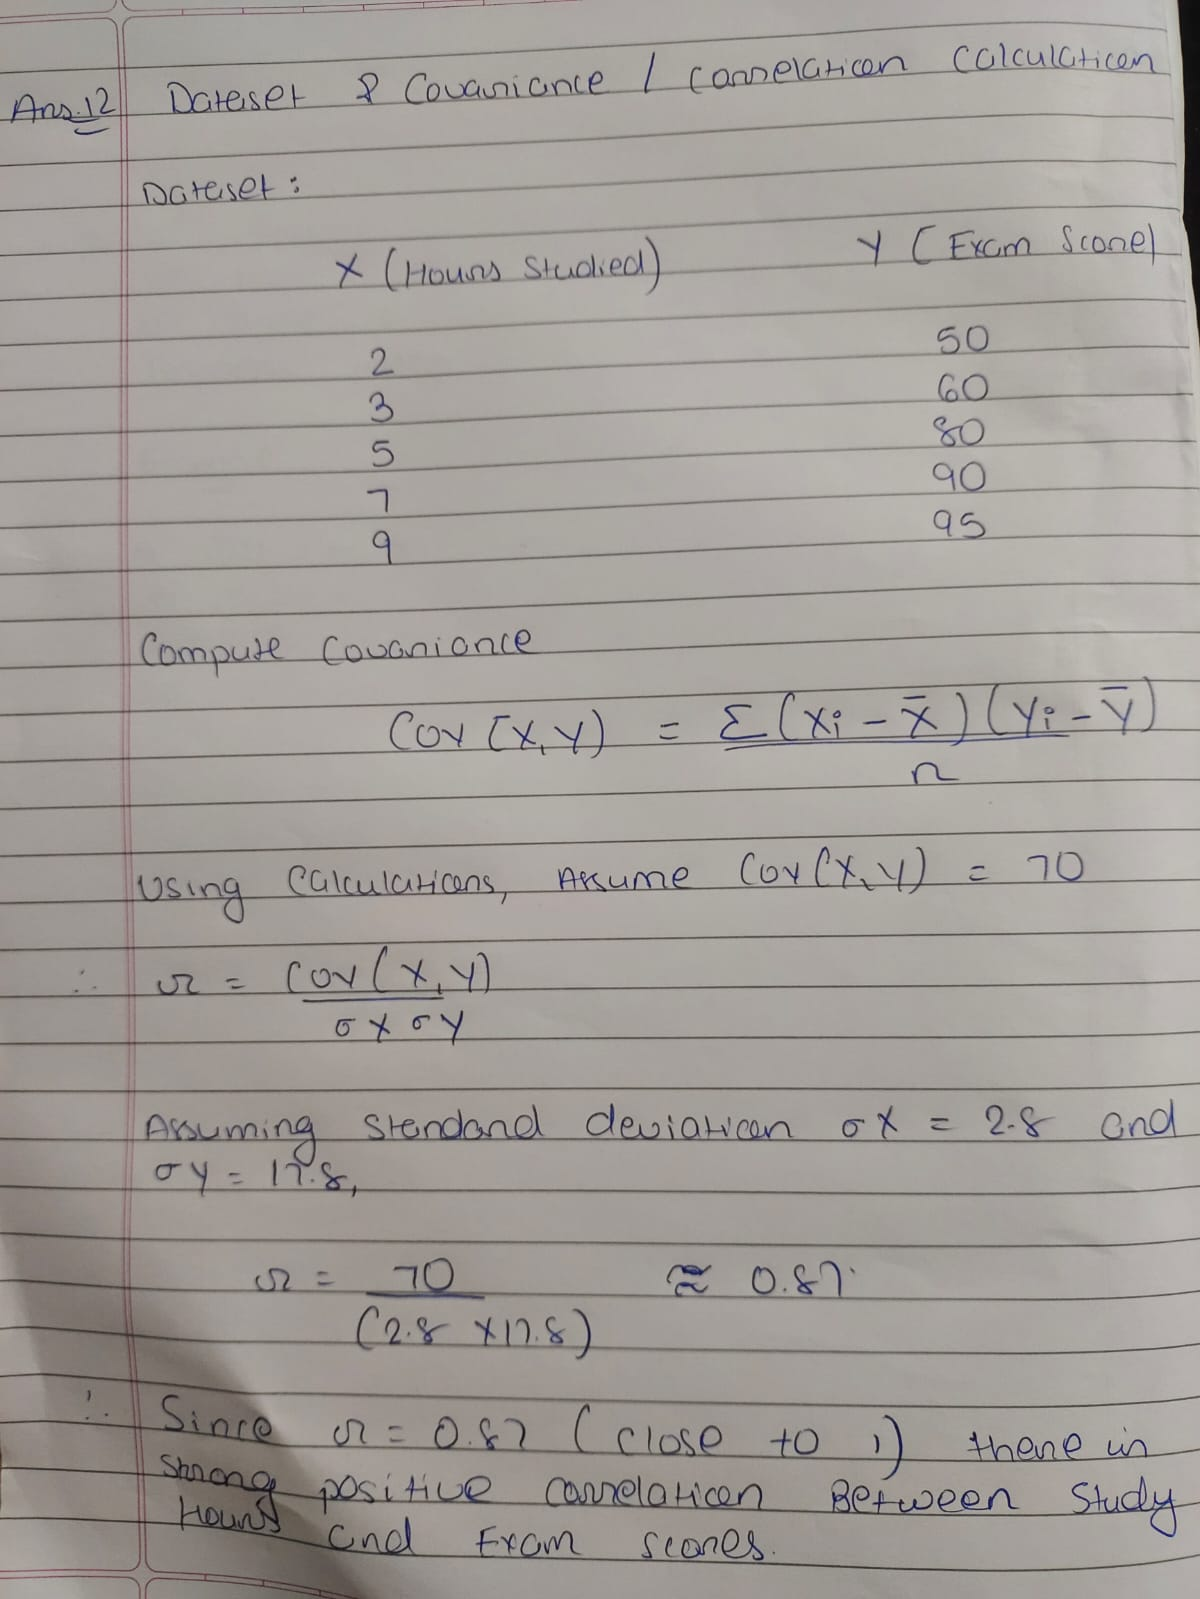 Ans.12 Dataset & Covariance / Correlation Calculation
Dataset :
X (Hours Studied) Y (Exam Score)
2 50
3 60
5 80
7 90
9 95
Compute Covariance
Cov (X, Y) = Σ (Xi - X̄) (Yi - Ȳ)
n
Using Calculations, Assume Cov (X, Y) = 70
∴ r = Cov (X, Y)
σX σY
Assuming Standard deviation σX = 2.8 and
σY = 17.8,
r = 70 ≈ 0.87
(2.8 X 17.8)
∴ Since r = 0.87 (close to 1) there is
Strong positive correlation Between Study
Hours and Exam scores.